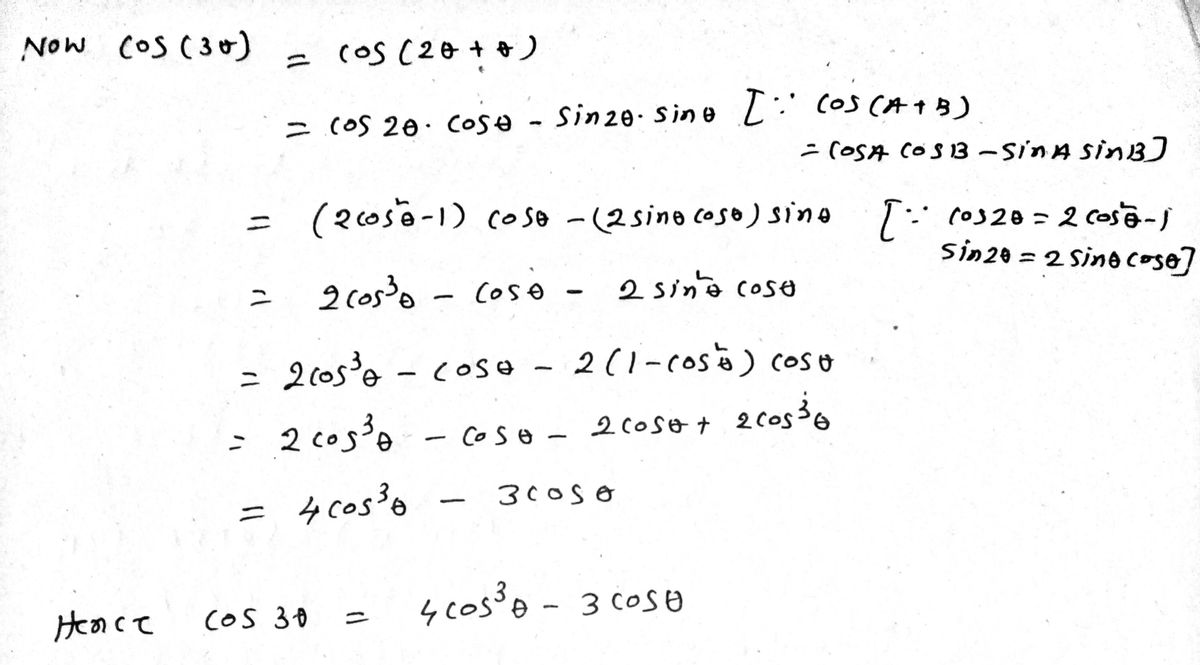 Now cos(3θ) = cos(2θ + θ)
= cos 2θ. cosθ - sin2θ. sinθ [∵ cos(A+B)
= cosA cosB - sinA sinB]
= (2cos²θ-1) cosθ - (2sinθ cosθ) sinθ [∵ cos2θ = 2cos²θ-1
sin2θ = 2 sinθ cosθ]
= 2cos³θ - cosθ - 2 sin²θ cosθ
= 2cos³θ - cosθ - 2(1-cos²θ) cosθ
= 2cos³θ - cosθ - 2cosθ + 2cos³θ
= 4cos³θ - 3cosθ
Hence cos 3θ = 4cos³θ - 3cosθ